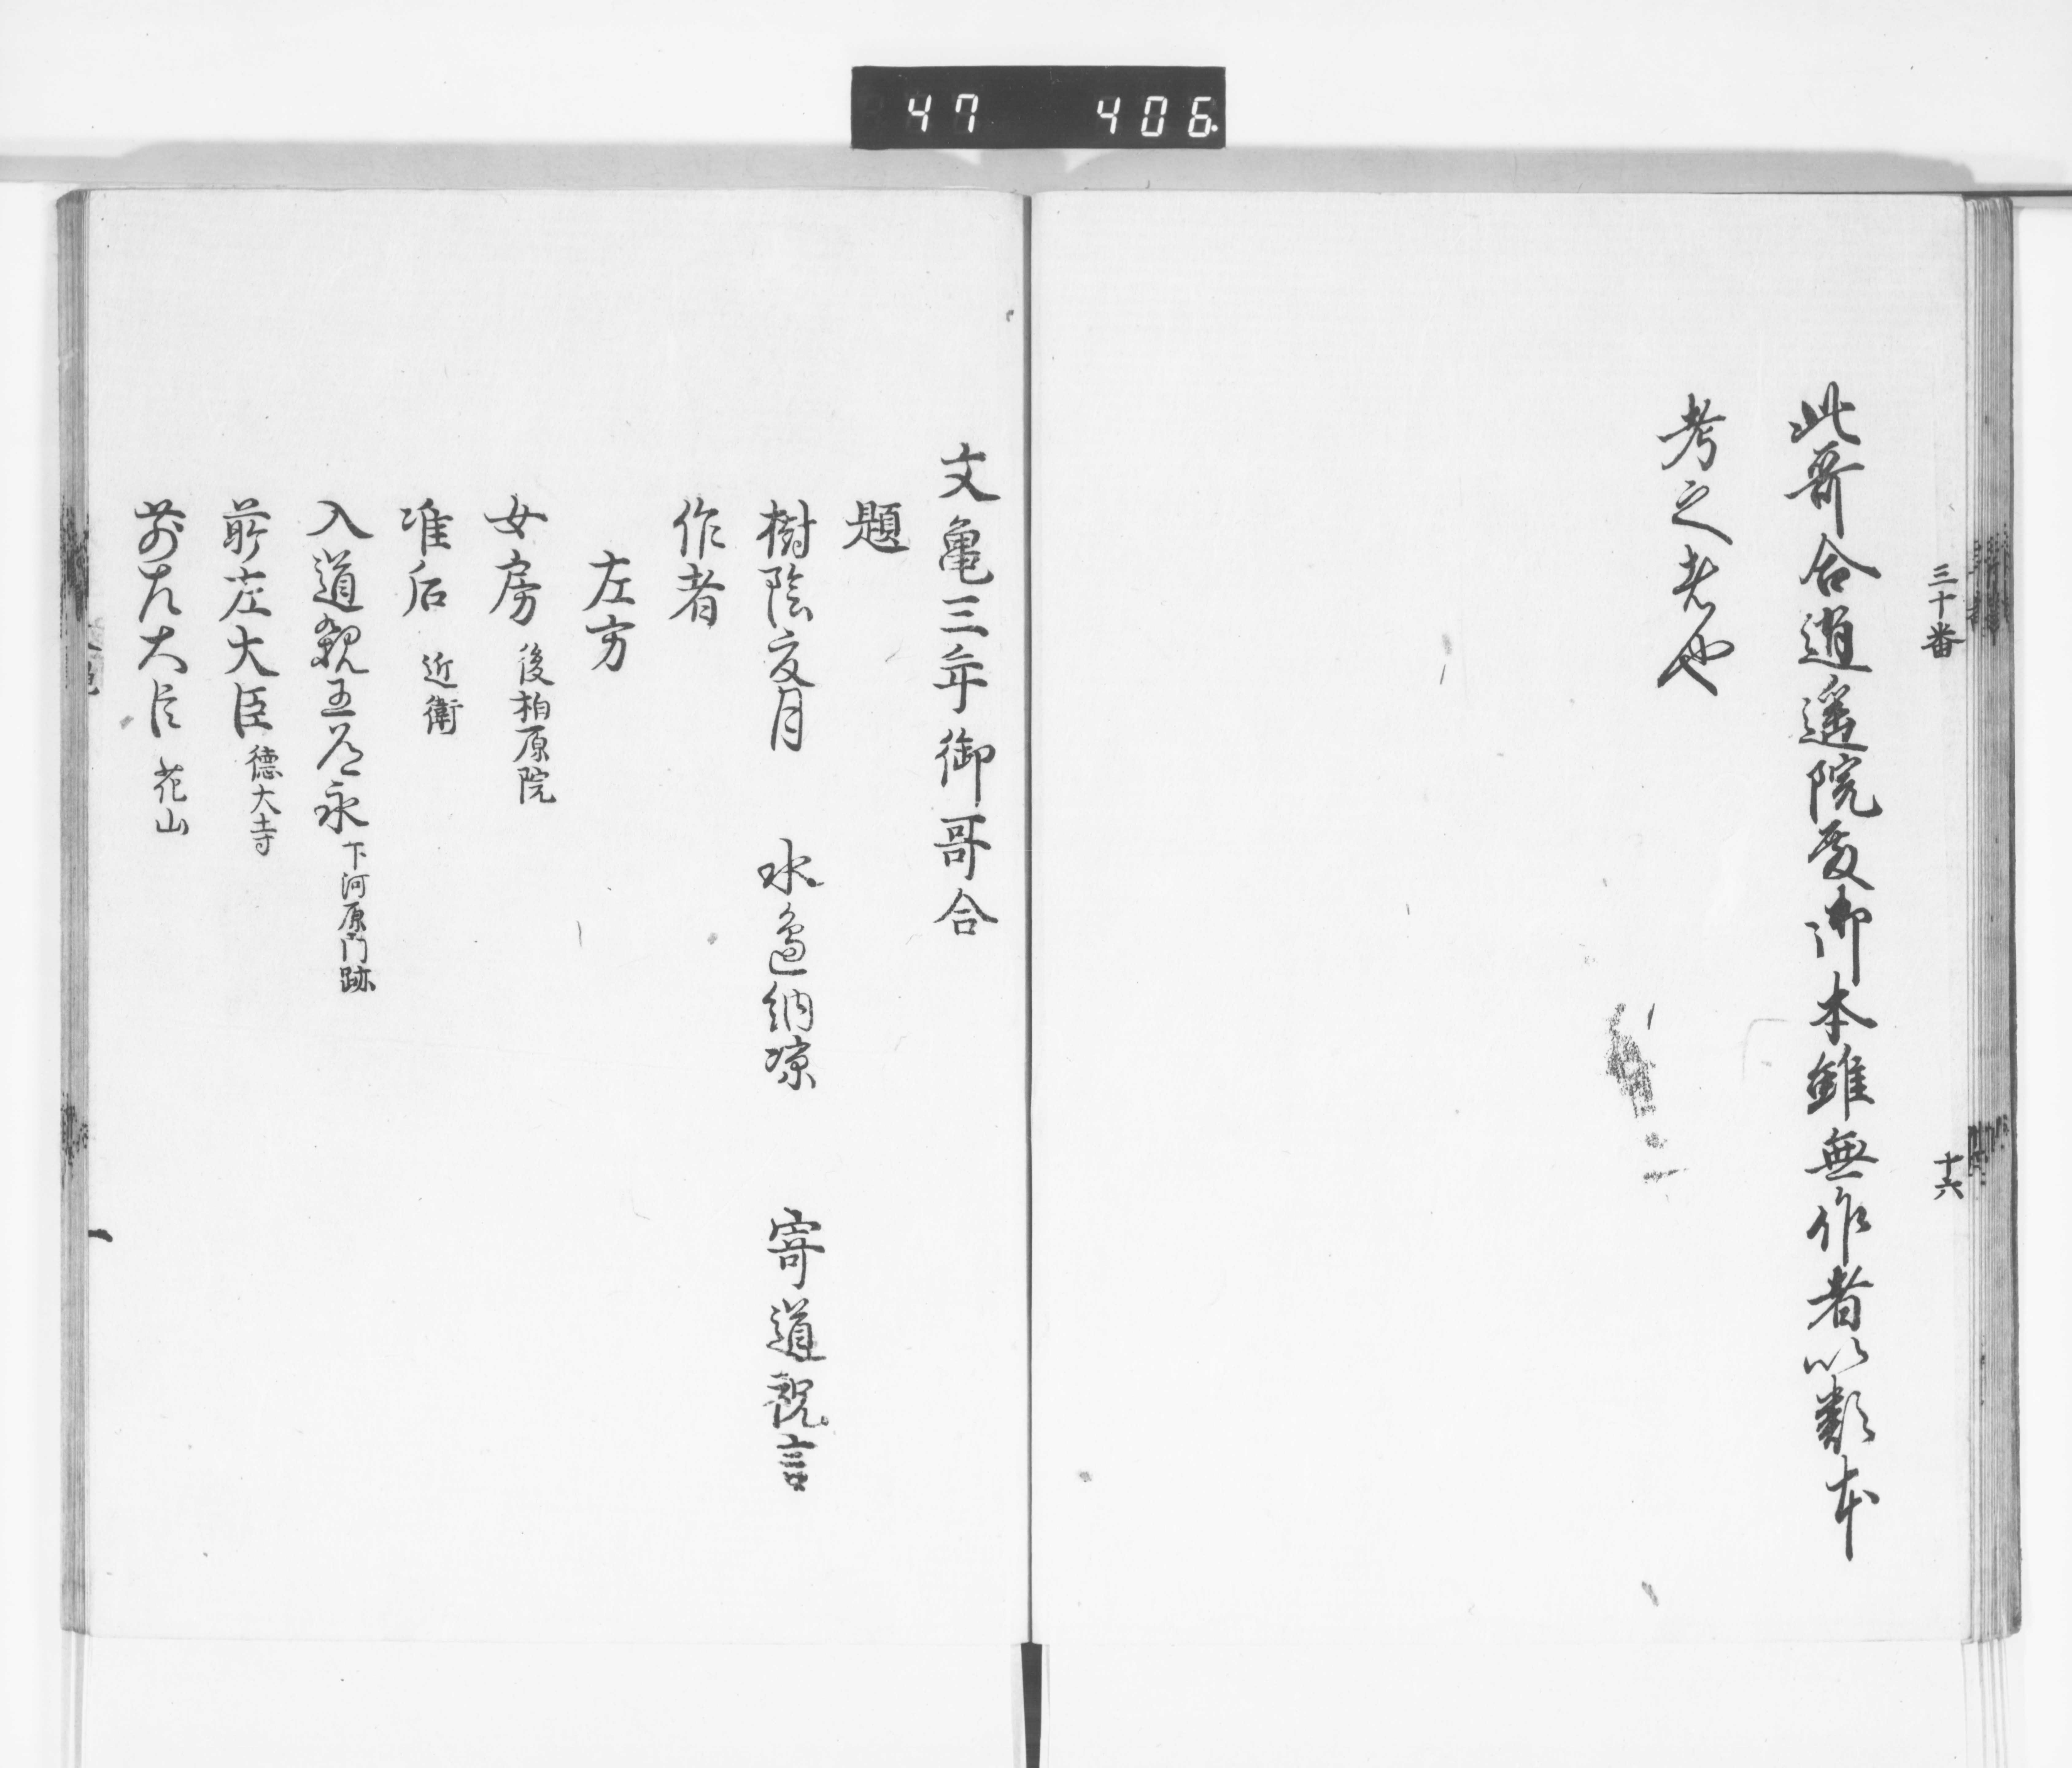 47 406
三十番 十六
此哥合逍遥院殿御本雖無作者以類本
考之者也
文亀三年御哥合
題
樹陰夜月 水邉納涼 寄道祝言
作者
左方
女房 後柏原院
准后 近衛
入道親王道永 下河原門跡
前左大臣 徳大寺
前左大臣 花山
一